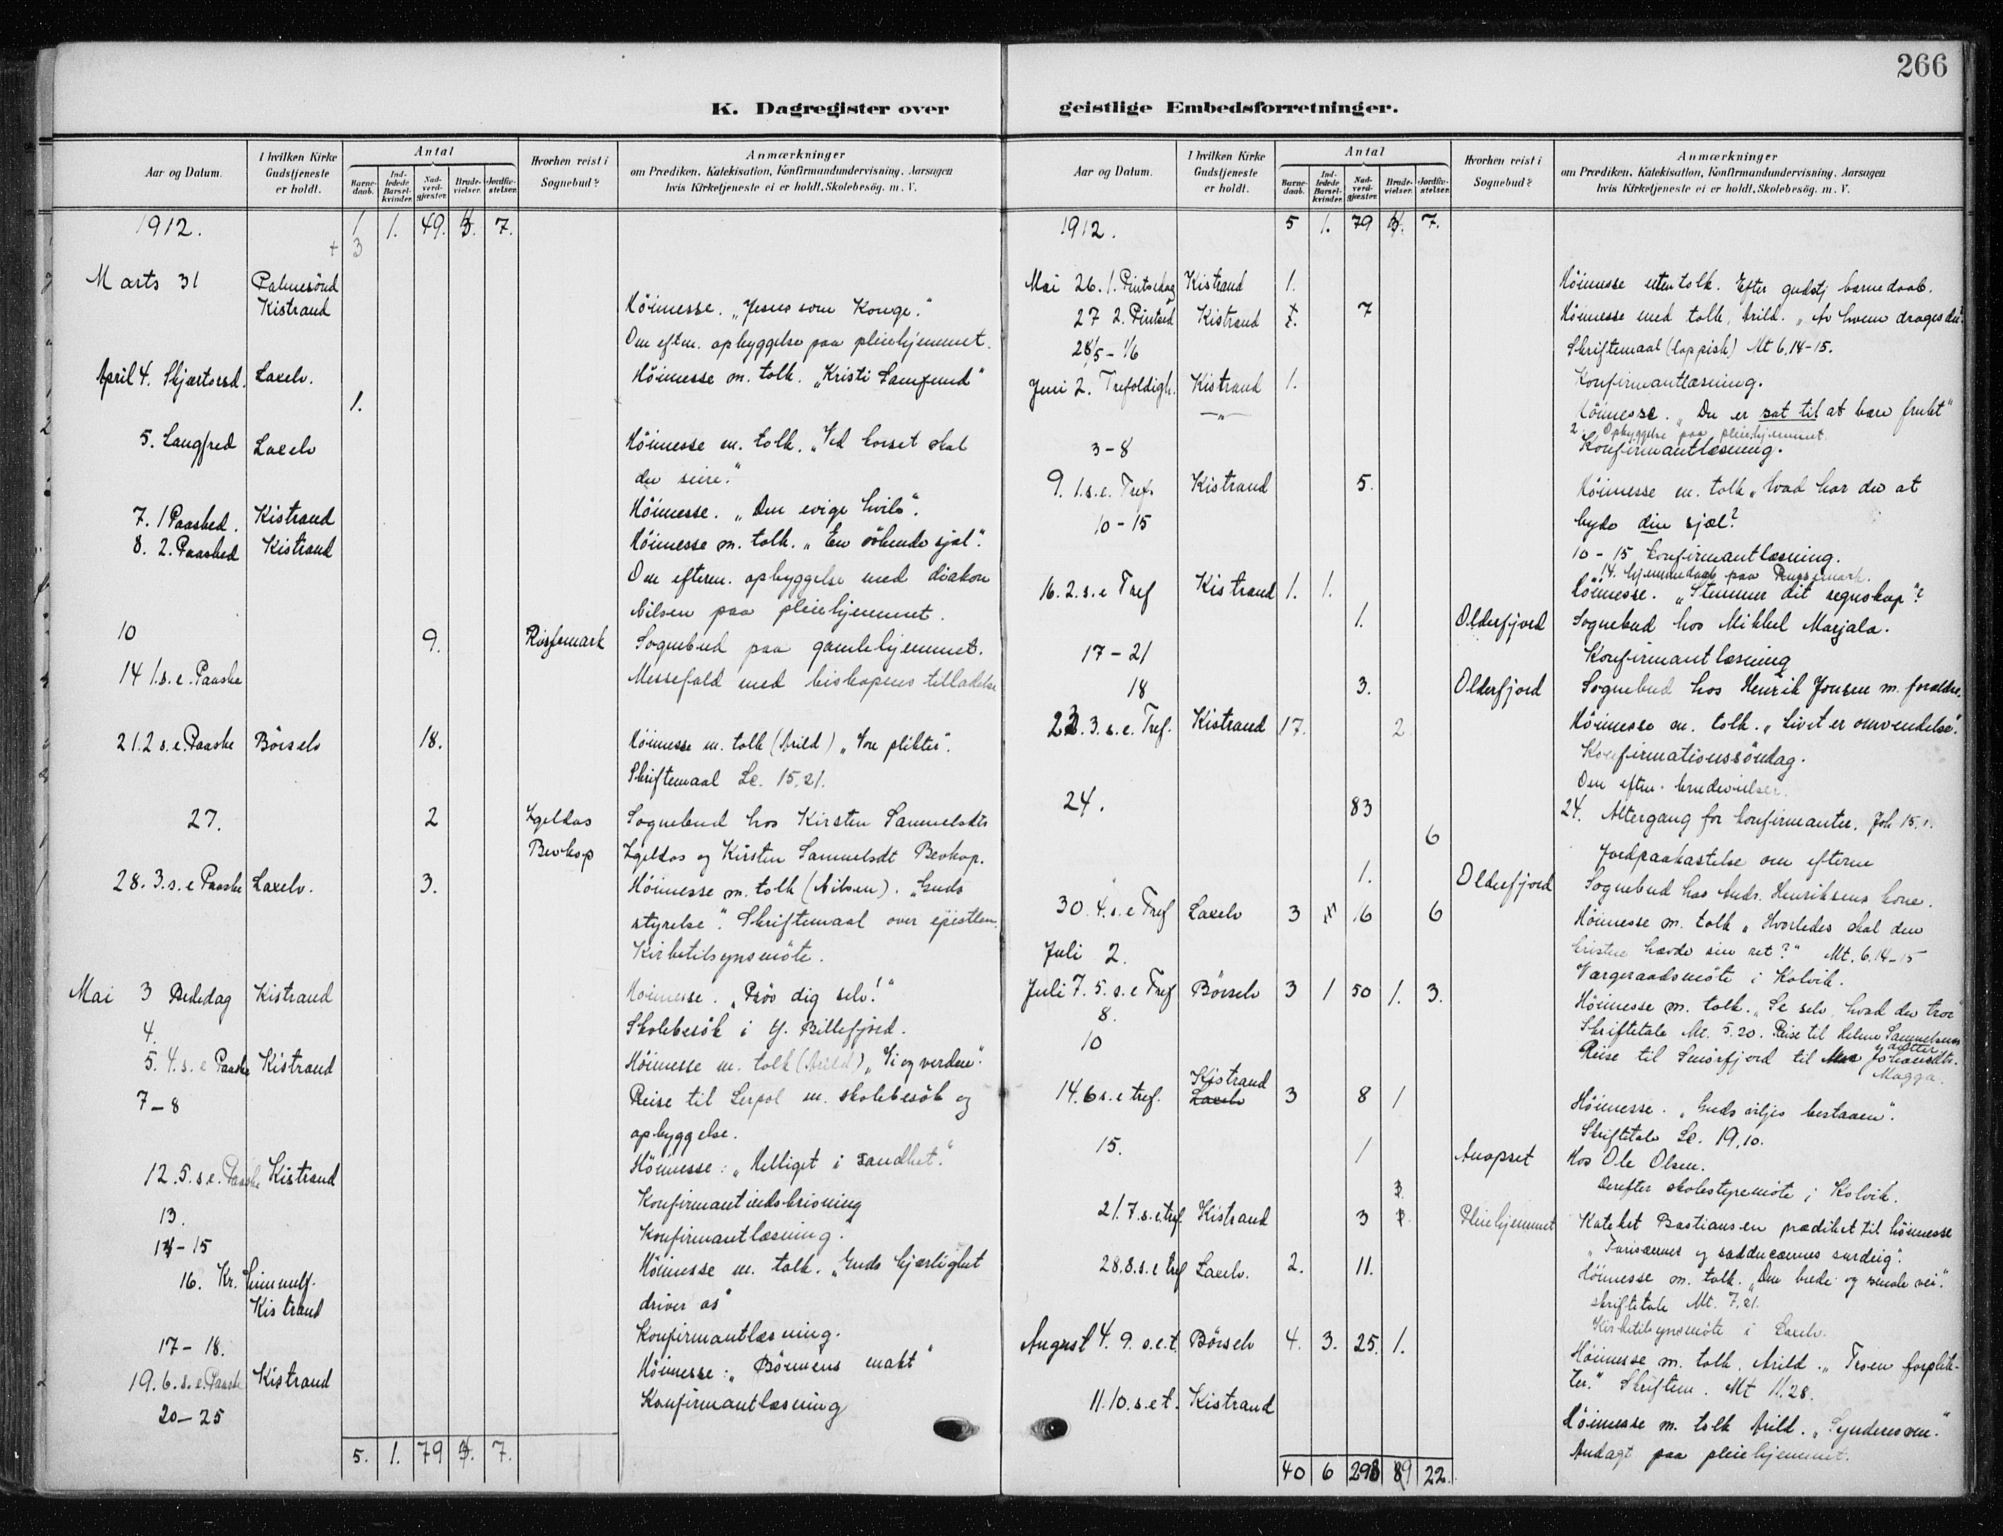 266
K. Dagregister over geistlige Embedsforretninger.
Aar og Datum. I hvilken Kirke Gudstjeneste er holdt. Antal Barnedaab. Indledede Barselkvinder. Nadverdgjester. Brudevielser. Jordfæstelser. Hvorhen reist i Sognebud? Anmærkninger om Prædiken. Katekisation, Konfirmandundervisning. Aarsagen hvis Kirketjeneste ei er holdt. Skolebesøg. m. V.
1912. 1 1. 49. 7.
+ 3
Marts 31 Palmesönd
Kistrand Höimesse. „Jesus som Konge."
Om eftm. opbyggelse paa pleiehjemmet.
April 4. Skjærtorsd. Laxelv. Höimesse m. tolk. „Kristi Samfund"
1.
5. Langfred Laxelv Höimesse m. tolk. „Ved korset skal
du seire."
7. 1 Paasked. Kistrand Höimesse. „Den evige hvile".
8. 2. Paasked Kistrand Höimesse m. tolk. „En sökende sjæl".
Om efterm. opbyggelse med diakon
Nilsen paa pleiehjemmet.
10 9. Russemark Sognebud paa gamlehjemmet.
14 1.s.e. Paaske Messefald med biskopens tilladelse
21. 2 s.e. Paaske Börselv 18. Höimesse m. tolk (Arild) „Vore plikter".
Skriftemaal Lc. 15,21.
27. 2 Igeldas Sognebud hos Kirsten Sammelsdtr
Bevkop Igeldas og Kirsten Samuelsdt Bevkop.
28. 3. s.e Paaske Laxelv. 3. Höimesse m. tolk (Nilsen). „Guds
styrelse". Skriftemaal over epistlen.
Kirketilsynsmöte.
Mai 3 Bededag Kistrand Höimesse. „Pröv dig selv!"
4. Skolebesök i Y. Billefjord.
5. 4. s.e Paaske Kistrand Höimesse m. tolk (Arild) „Vi og verden".
7-8 Reise til Lerpol m. skolebesök og
opbyggelse.
12. 5. s.e. Paaske Kistrand Höimesse: „Helliget i sandhet."
13. Konfirmantindskrivning
14-15 Konfirmantlæsning.
16. Kr. himmelf. Höimesse m. tolk. „Guds kjærlighet
Kistrand driver os"
17-18. Konfirmantlæsning.
19. 6. s.e. Paaske Kistrand Höimesse: „Bönnens makt"
20-25 Konfirmantlæsning
5. 1. 79 7.
Aar og Datum. I hvilken Kirke Gudstjeneste er holdt. Antal Barnedaab. Indledede Barselkvinder. Nadverdgjester. Brudevielser. Jordfæstelser. Hvorhen reist i Sognebud? Anmærkninger om Prædiken. Katekisation, Konfirmandundervisning. Aarsagen hvis Kirketjeneste ei er holdt. Skolebesøg. m. V.
1912. 5 1. 79 7.
Mai 26. 1. Pintsedag Kistrand 1. Höimesse uten tolk. Efter gudstj barnedaab.
27 2. Pintsed Kistrand 7 Höimesse med tolk, Arild. „Av hvem drages du".
28/5 - 1/6 Skriftemaal (lappisk) Mt 6,14-15.
Juni 2. Trefoldigh. Kistrand 1. Konfirmantlæsning.
-„- Höimesse. „Du er sat til at bære frukt"
2. Opbyggelse paa pleiehjemmet.
3-8 Konfirmantlæsning.
9. 1.s.e. Tref. Kistrand 5. Höimesse m. tolk „Hvad har du at
10-15 byde din sjæl?
10-15 konfirmantlæsning.
14. hjemmedaab paa Russemark.
16. 2.s.e Tref Kistrand 1. 1. Höimesse. „Stemmer dit regnskap"?
1. Olderfjord Sognebud hos Mikkel Marjala.
17-21 Konfirmantlæsning
18 3. Olderfjord Sognebud hos Henrik Jonsen m. forældre.
23. 3. s.e. Tref. Kistrand 17. 2. Höimesse m. tolk. „Livet er omvendelse".
Konfirmationssöndag.
Om eftm. brudevielser.
24. 83 24. Altergang for konfirmanter. Joh 15,1.
6 Jordpaakastelse om efterm
1. Olderfjord Sognebud hos Andr. Henriksens kone.
30. 4. s.e Tref Laxelv 3 16 6 Höimesse m. tolk „Hvorledes skal den
kristne hævde sin ret?" Mt. 6,14-15
Juli 2. Værgeraadsmöte i Kolvik.
Juli 7. 5. s.e Tref Börselv 3 1 50 1. 3. Höimesse m. tolk. „Se selv, hvad du tror"
8. Skriftetale Mt. 5.20. Reise til Helene Sammelsens
datter
10 Reise til Smörfjord til Johansdtr.
Magga.
14. 6 s.e tref. Kistrand Laxelv 3 8 1 Höimesse. „Guds viljes bestaaen".
Skriftetale Lc. 19,10.
15. 1 Anopset Hos Ole Olsen.
Derefter skolestyremöte i Kolvik.
21. 7. s.e. tref. Kistrand 3 3. Pleiehjemmet Kateket Bastiansen prædiket til höimesse
„Farisæernes og sadducæernes surdeig".
28. 8. s.e tref Laxelv. 2. 11. Höimesse m. tolk. „Den brede og smale vei."
Skriftetale Mt. 7,21.
Kirketilsynsmöte i Laxelv.
August 4. 9. s.e.t. Börselv 4. 3. 25. 1. Höimesse m. tolk. Arild. „Troen forplikter."
Skriftem. Mt 11.28.
11. 10. s.e t. Kistrand Höimesse m. tolk Arild. „Synderes ven."
Andagt paa pleiehjemmet.
40 6 298 9 22.